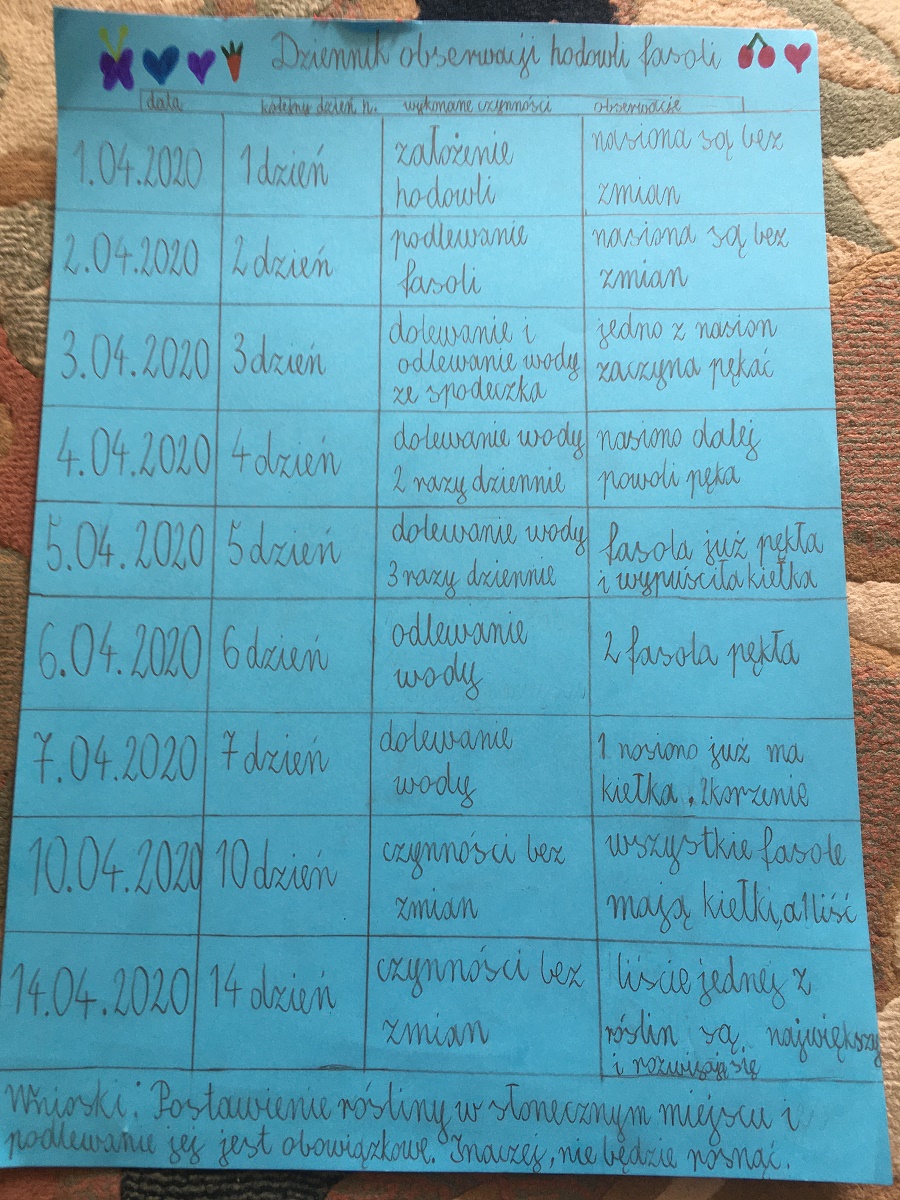 Dziennik obserwacji hodowli fasoli
data kolejny dzień h. wykonane czynności obserwacje
1.04.2020 1 dzień założenie hodowli nasiona są bez zmian
2.04.2020 2 dzień podlewanie fasoli nasiona są bez zmian
3.04.2020 3 dzień dolewanie i odlewanie wody ze spodeczka jedno z nasion zaczyna pękać
4.04.2020 4 dzień dolewanie wody 2 razy dziennie nasiono dalej powoli pęka
5.04.2020 5 dzień dolewanie wody 3 razy dziennie fasola już pękła i wypuściła kiełka
6.04.2020 6 dzień odlewanie wody 2 fasola pękła
7.04.2020 7 dzień dolewanie wody 1 nosiono już ma kiełka, 2korzenie
10.04.2020 10 dzień czynności bez zmian wszystkie fasole mają kiełki, a 1 liść
14.04.2020 14 dzień czynności bez zmian liście jednej z roślin są największy i rozwijają się
Wnioski: Postawienie rośliny w słonecznym miejscu i
podlewanie jej jest obowiązkowe. Inaczej, nie będzie rosnąć.